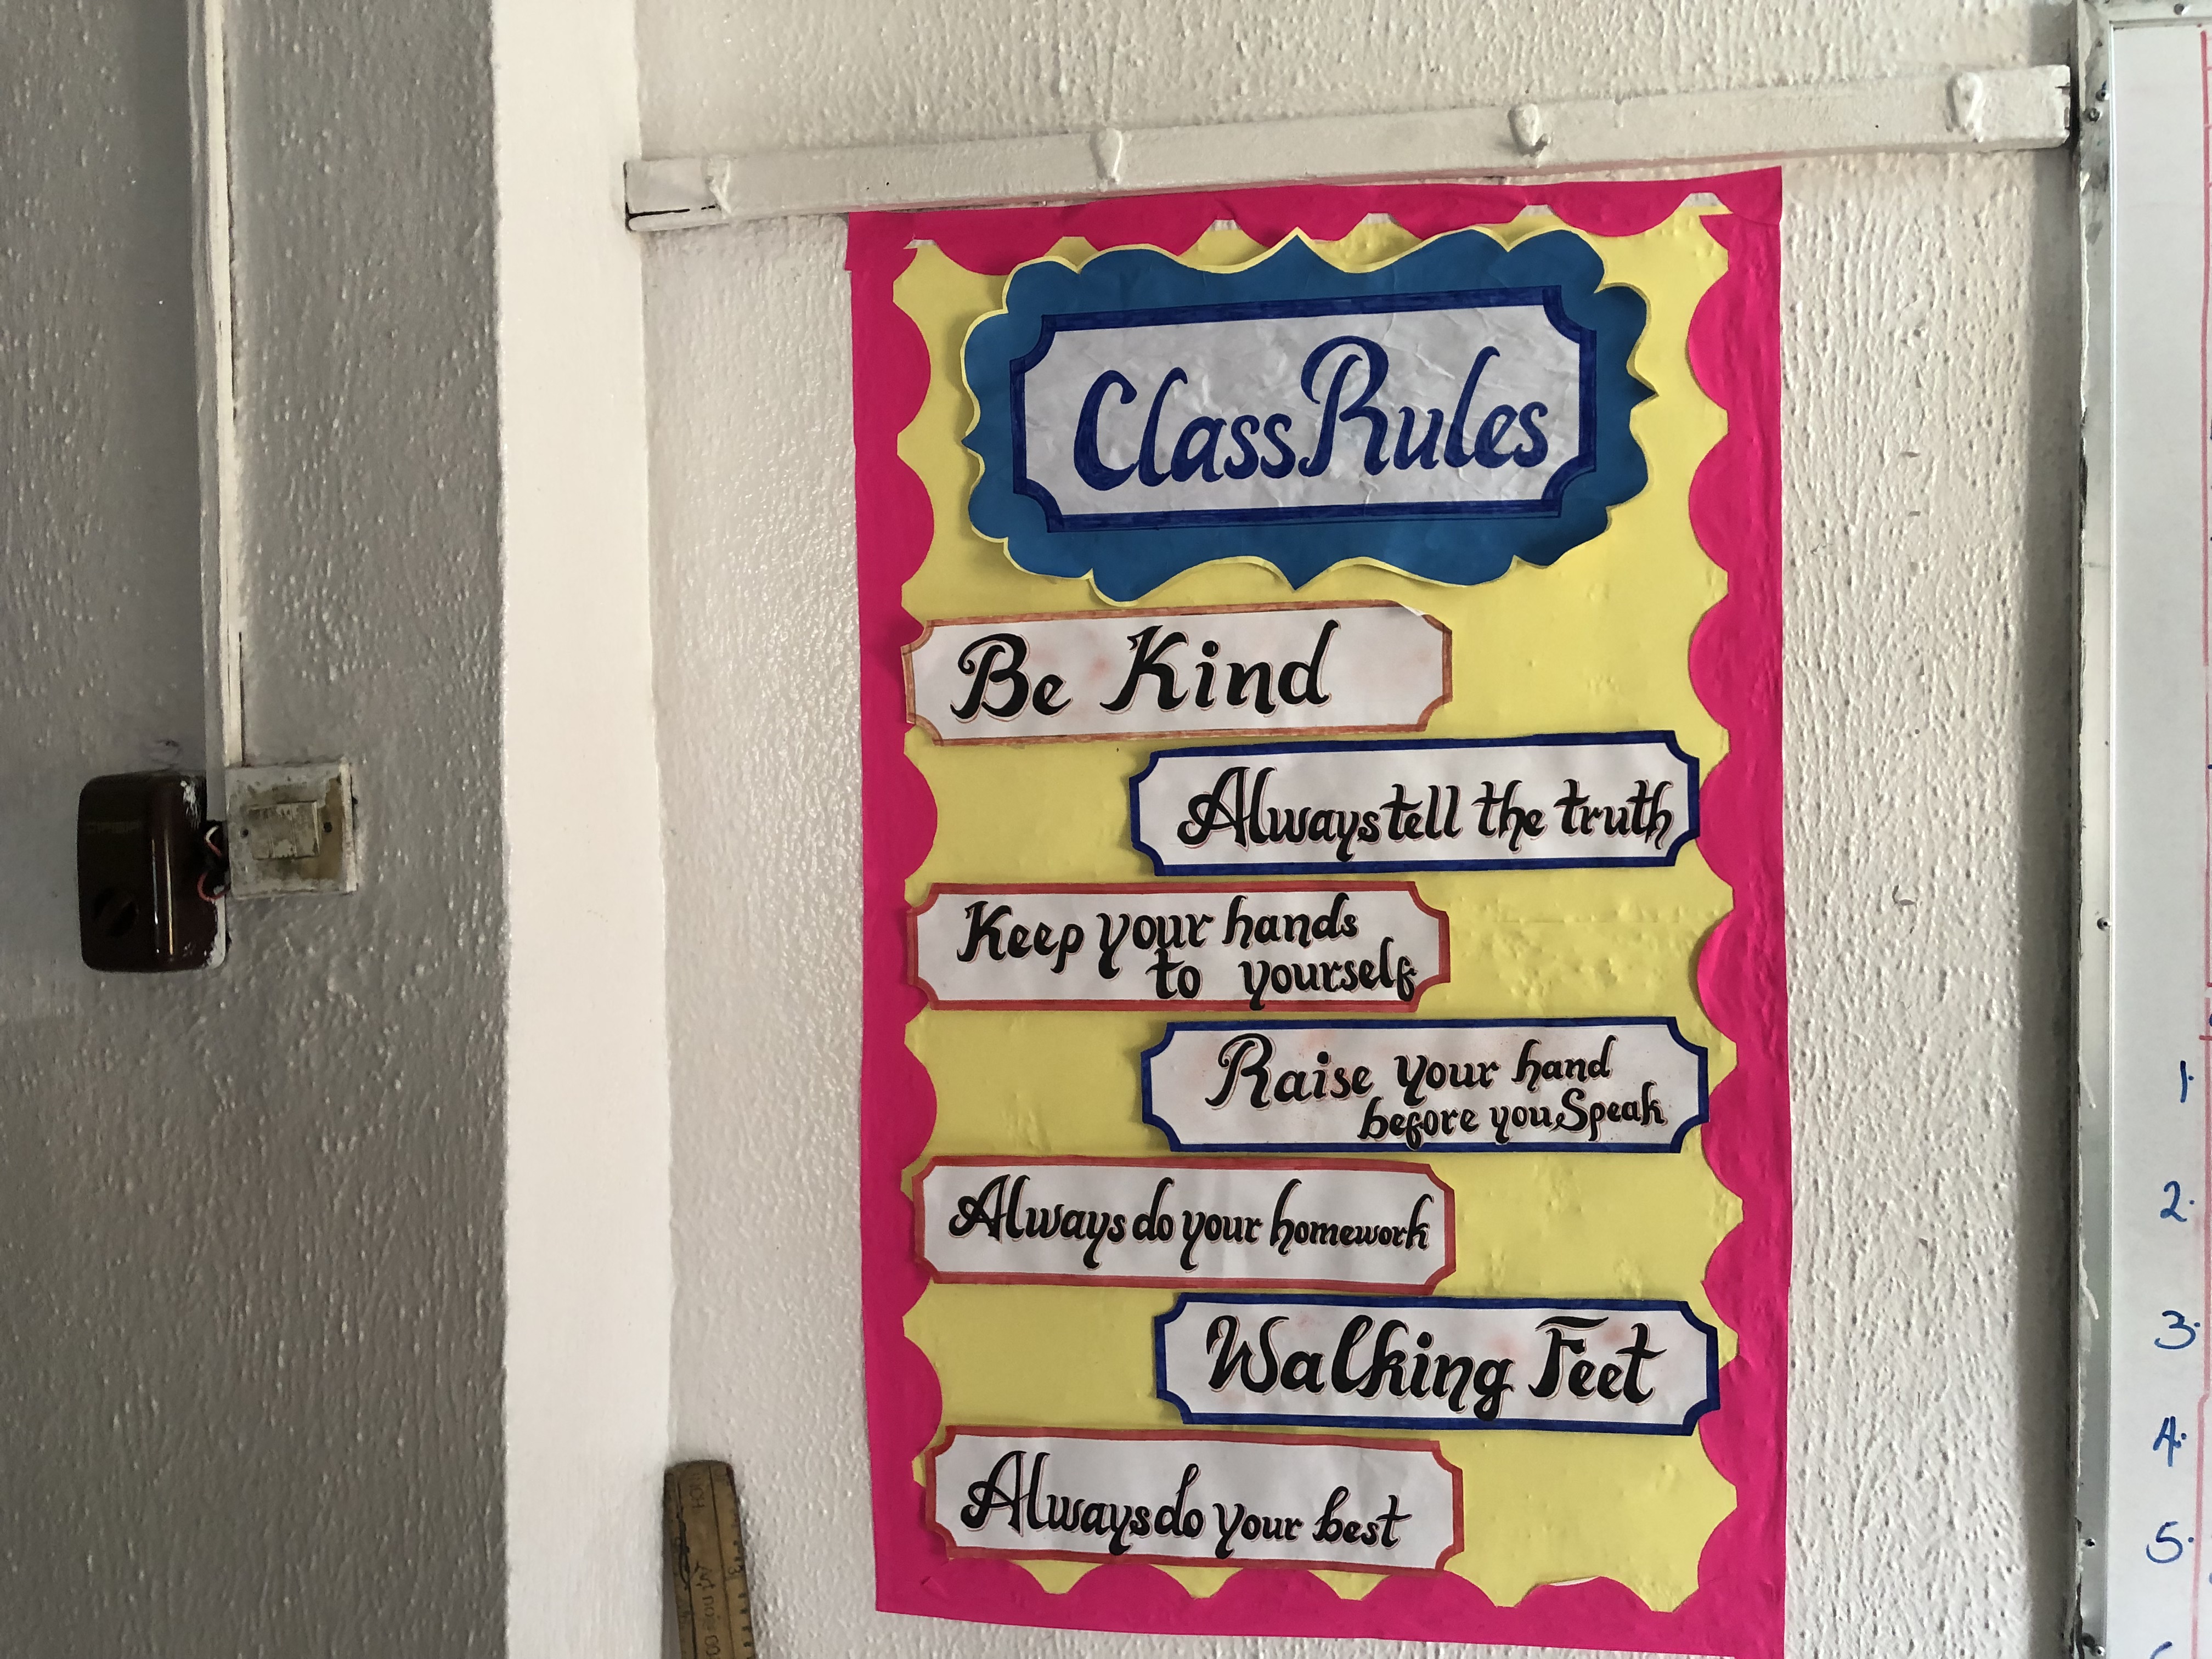 Class Rules
Be Kind
Always tell the truth
Keep your hands
to yourself
Raise your hand
before you Speak
Always do your homework
Walking Feet
Always do your best
1.
2.
3.
4.
5.